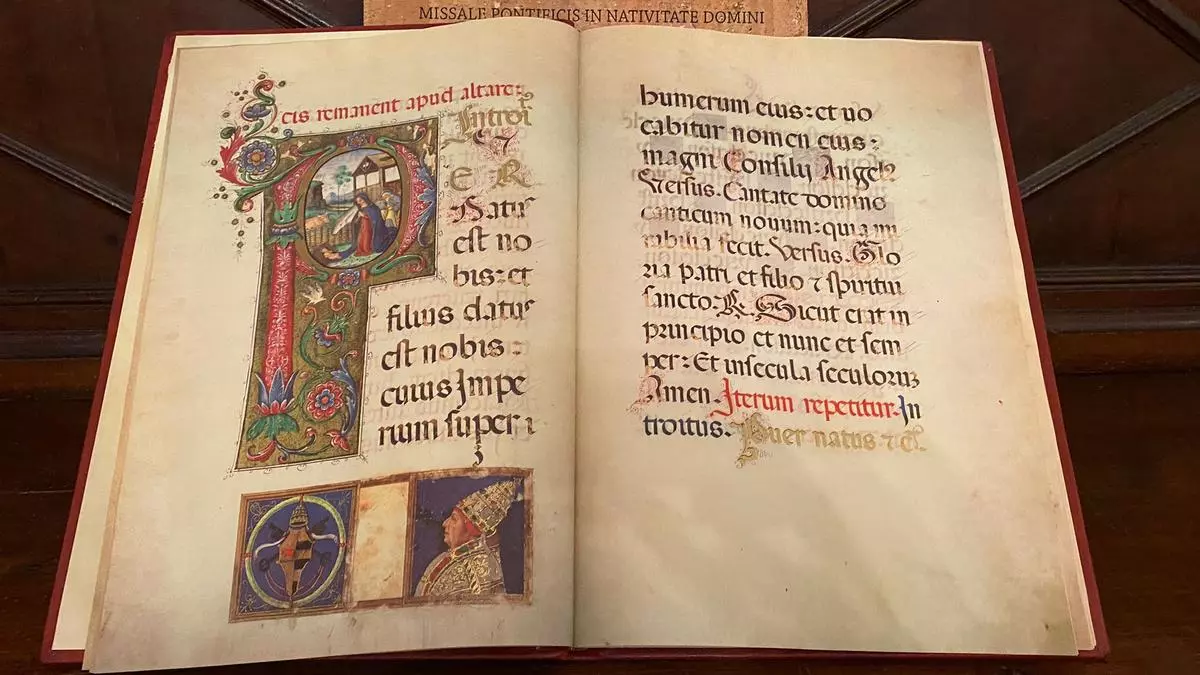 MISSALE PONTIFICIS IN NATIVITATE DOMINI
cis remanent apud altare:
Introi
P
E R
Natus
est no
bis: et
filius datus
est nobis:
cuius Impe
rium super
humerum eius: et uo
cabitur nomen eius:
magni Consilij Angelus
Versus. Cantate domino
canticum nouum: quia mi
rabilia fecit. Versus. Glo
ria patri et filio ⁊ spiritui
sancto. R. Sicut erat in
principio et nunc et sem
per: Et insecula seculorum
Amen. Iterum repetitur. In
troitus. Puer natus ⁊ c.